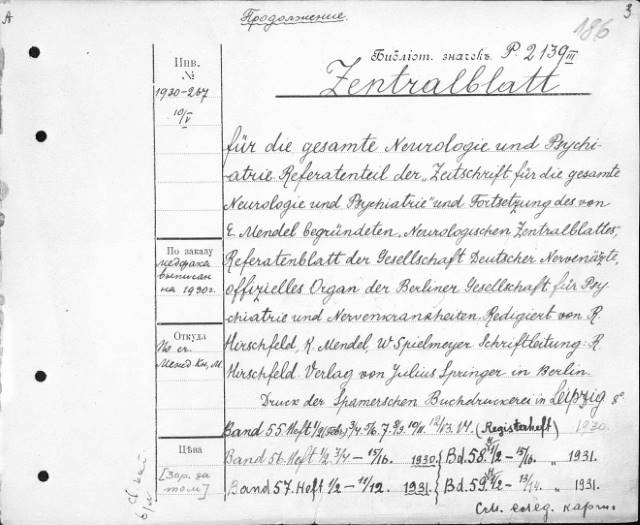 А
Продолженіе.
3
186
Инв.
№
1930-267
10/V
Библіот. значекъ. P. 2139 III
Zentralblatt
für die gesamte Neurologie und Psychi-
atrie. Referatenteil der „Zeitschrift für die gesamte
Neurologie und Psychiatrie" und Fortsetzung des von
E. Mendel begründeten Neurologischen Zentralblattes,
Referatenblatt der Gesellschaft Deutscher Nervenärzte,
offizielles Organ der Berliner Gesellschaft für Psy-
chiatrie und Nervenkrankheiten. Redigiert von R.
Hirschfeld, K. Mendel, W. Spielmeyer. Schriftleitung: R.
Hirschfeld. Verlag von Julius Springer in Berlin.
Druck der Spamerschen Buchdruckerei in Leipzig 8°
По заказу
медфака
выписан
на 1930 г.
Откуда
Цѣна
[Зар. за
том]
Band 55. Heft 10/11. 12/13. 14. (Registerheft) 1930.
Band 56. Heft 1/2. 3/4 – 15/16. 1930. Bd. 58. 1/2 – 15/16. „ 1931.
Band 57. Heft 1/2 – 11/12. 1931. Bd. 59. 1/2 – 13/14. „ 1931.
См. след. карт.